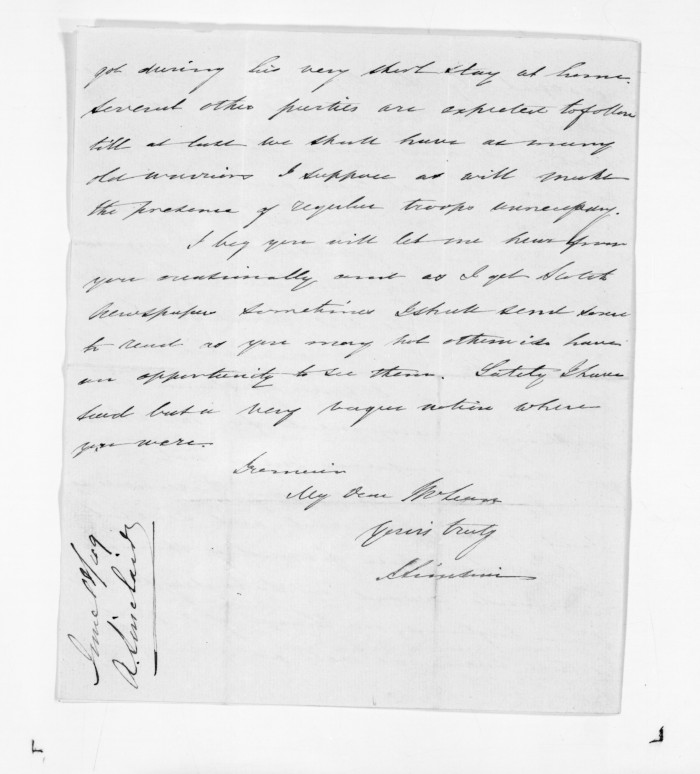 got during his very short stay at home.
Several other parties are expected to follow
till at last we shall have as many
old warriors I suppose as will make
the presence of regular troops unnecessary.
I beg you will let me hear from
you occasionally and as I get Scotch
Newspapers sometimes I shall send some
to read as you may not otherwise have
an opportunity to see them. Lately I have
had but a very vague notion where
you were.
I remain
My dear McLean
Yours truly
A Sinclair
June 19/49
A. Sinclair